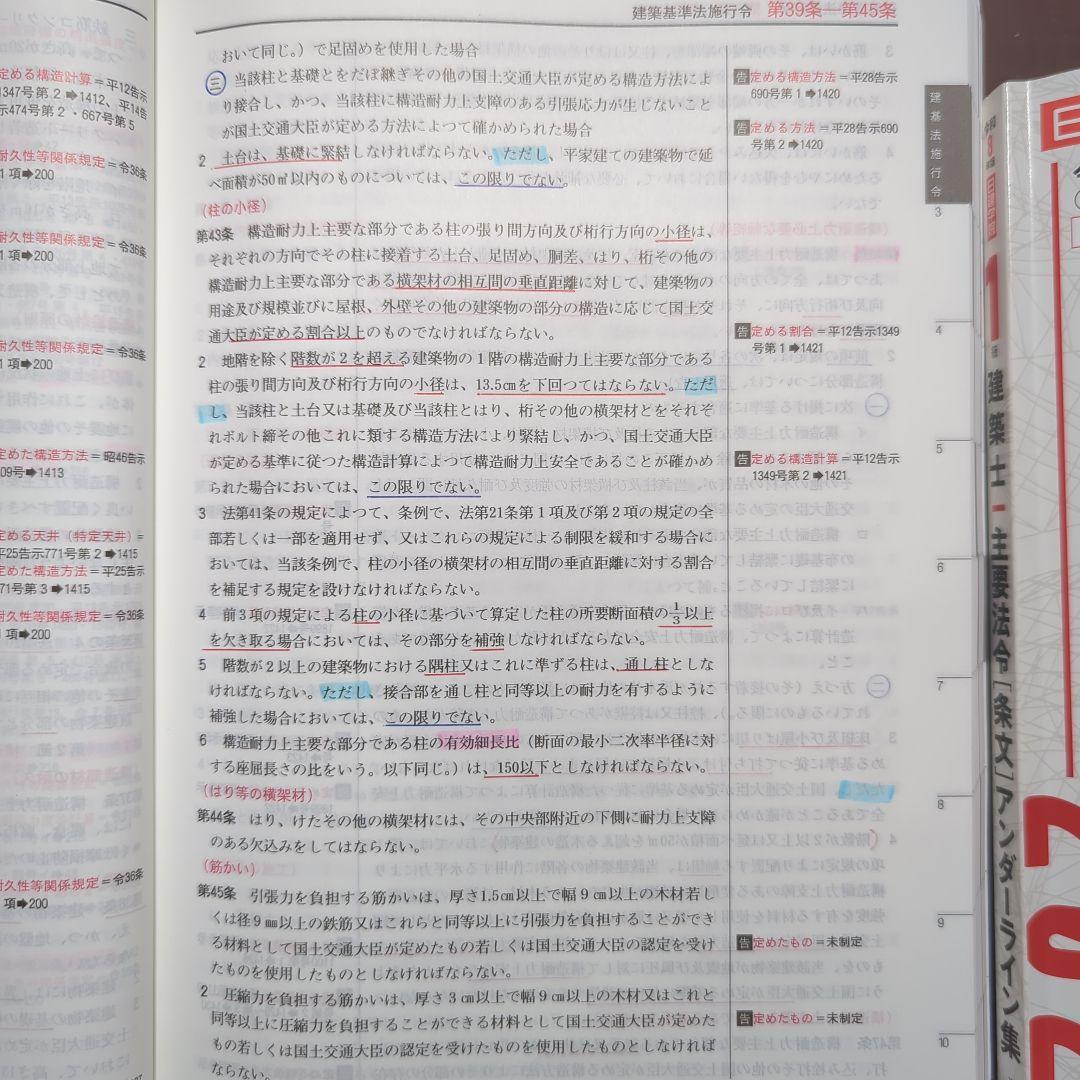 建築基準法施行令 第39条―第45条
おいて同じ。）で足固めを使用した場合
三 当該柱と基礎とをだぼ継ぎその他の国土交通大臣が定める構造方法によ
り接合し、かつ、当該柱に構造耐力上支障のある引張応力が生じないこと
が国土交通大臣が定める方法によつて確かめられた場合
2 土台は、基礎に緊結しなければならない。ただし、平家建ての建築物で延
べ面積が50㎡以内のものについては、この限りでない。
（柱の小径）
第43条 構造耐力上主要な部分である柱の張り間方向及び桁行方向の小径は、
それぞれの方向でその柱に接着する土台、足固め、胴差、はり、桁その他の
構造耐力上主要な部分である横架材の相互間の垂直距離に対して、建築物の
用途及び規模並びに屋根、外壁その他の建築物の部分の構造に応じて国土交
通大臣が定める割合以上のものでなければならない。
2 地階を除く階数が2を超える建築物の1階の構造耐力上主要な部分である
柱の張り間方向及び桁行方向の小径は、13.5㎝を下回つてはならない。ただ
し、当該柱と土台又は基礎及び当該柱とはり、桁その他の横架材とをそれぞ
れボルト締その他これに類する構造方法により緊結し、かつ、国土交通大臣
が定める基準に従つた構造計算によつて構造耐力上安全であることが確かめ
られた場合においては、この限りでない。
3 法第41条の規定によつて、条例で、法第21条第1項及び第2項の規定の全
部若しくは一部を適用せず、又はこれらの規定による制限を緩和する場合に
おいては、当該条例で、柱の小径の横架材の相互間の垂直距離に対する割合
を補足する規定を設けなければならない。
4 前3項の規定による柱の小径に基づいて算定した柱の所要断面積の1/3以上
を欠き取る場合においては、その部分を補強しなければならない。
5 階数が2以上の建築物における隅柱又はこれに準ずる柱は、通し柱としな
ければならない。ただし、接合部を通し柱と同等以上の耐力を有するように
補強した場合においては、この限りでない。
6 構造耐力上主要な部分である柱の有効細長比（断面の最小二次率半径に対
する座屈長さの比をいう。以下同じ。）は、150以下としなければならない。
（はり等の横架材）
第44条 はり、けたその他の横架材には、その中央部附近の下側に耐力上支障
のある欠込みをしてはならない。
（筋かい）
第45条 引張力を負担する筋かいは、厚さ1.5㎝以上で幅9㎝以上の木材若し
くは径9㎜以上の鉄筋又はこれらと同等以上に引張力を負担することができ
る材料として国土交通大臣が定めたもの若しくは国土交通大臣の認定を受け
たものを使用したものとしなければならない。
2 圧縮力を負担する筋かいは、厚さ3㎝以上で幅9㎝以上の木材又はこれと
同等以上に圧縮力を負担することができる材料として国土交通大臣が定めた
もの若しくは国土交通大臣の認定を受けたものを使用したものとしなければ
ならない。
告 定める構造方法＝平28告示
690号第1➡1420
告 定める方法＝平28告示690
号第2➡1420
告 定める割合＝平12告示1349
号第1➡1421
告 定める構造計算＝平12告示
1349号第2➡1421
告 定めたもの＝未制定
告 定めたもの＝未制定
建基法施行令
3
4
5
6
7
8
9
10
定める構造計算＝平12告示
1347号第2➡1412、平14告
示474号第2・667号第5
耐久性等関係規定＝令36条
1項➡200
耐久性等関係規定＝令36条
1項➡200
耐久性等関係規定＝令36条
1項➡200
定めた構造方法＝昭46告示
09号➡1413
定める天井（特定天井）＝
平25告示771号第2➡1415
定めた構造方法＝平25告示
71号第3➡1415
耐久性等関係規定＝令36条
1項➡200
耐久性等関係規定＝令36条
1項➡200
1
建築士－主要法令［条文］アンダーライン集